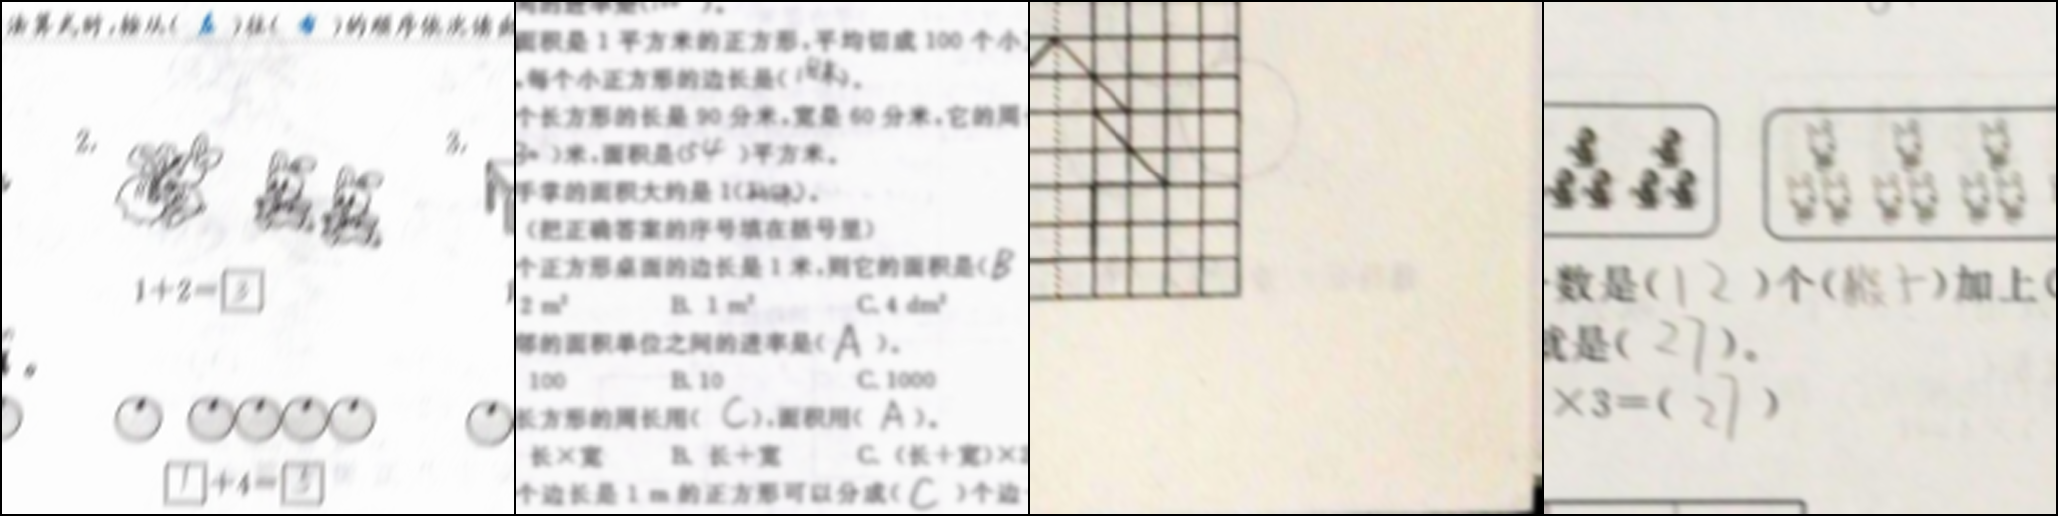 法算式时,按从( 左 )往( 右 )的顺序依次
2.
3.
1+2=3
1+4=5
面积是1平方米的正方形,平均切成100个小
,每个小正方形的边长是( )。
个长方形的长是90分米,宽是60分米,它的周
)米,面积是(54 )平方米。
手掌的面积大约是1( )。
(把正确答案的序号填在括号里)
个正方形桌面的边长是1米,则它的面积是( B
2 m² B. 1 m² C. 4 dm²
的面积单位之间的进率是( A )。
100 B. 10 C. 1000
长方形的周长用( C ),面积用( A )。
长×宽 B. 长+宽 C. (长+宽)×2
个边长是1 m的正方形可以分成( C )个边
数是(12)个( )加上(
就是( 27 )。
×3=( 27 )